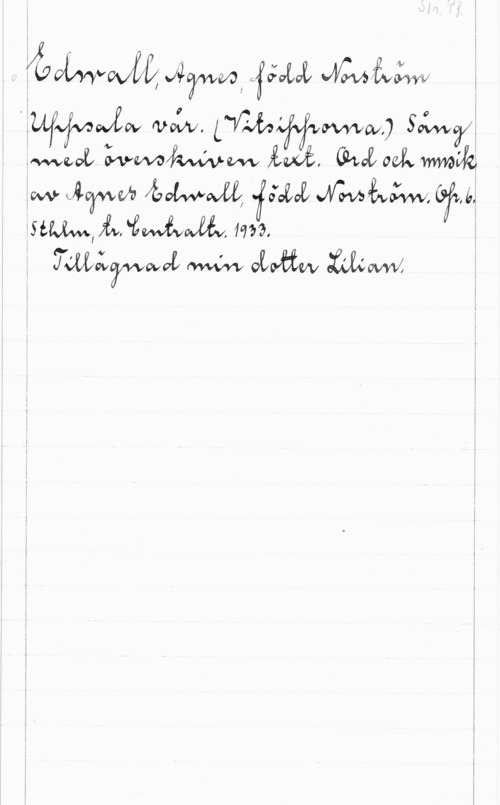 S/n. Pf.
Edwall, Agnes, född Norström
Uppsala vår. (Vitsipporna.) Sång
med överskriven text. Ord och musik
av Agnes Edwall, född Norström. Op. 6.
Sthlm, tr. Centraltr. 1933.
Tillägnad min dotter Lilian.